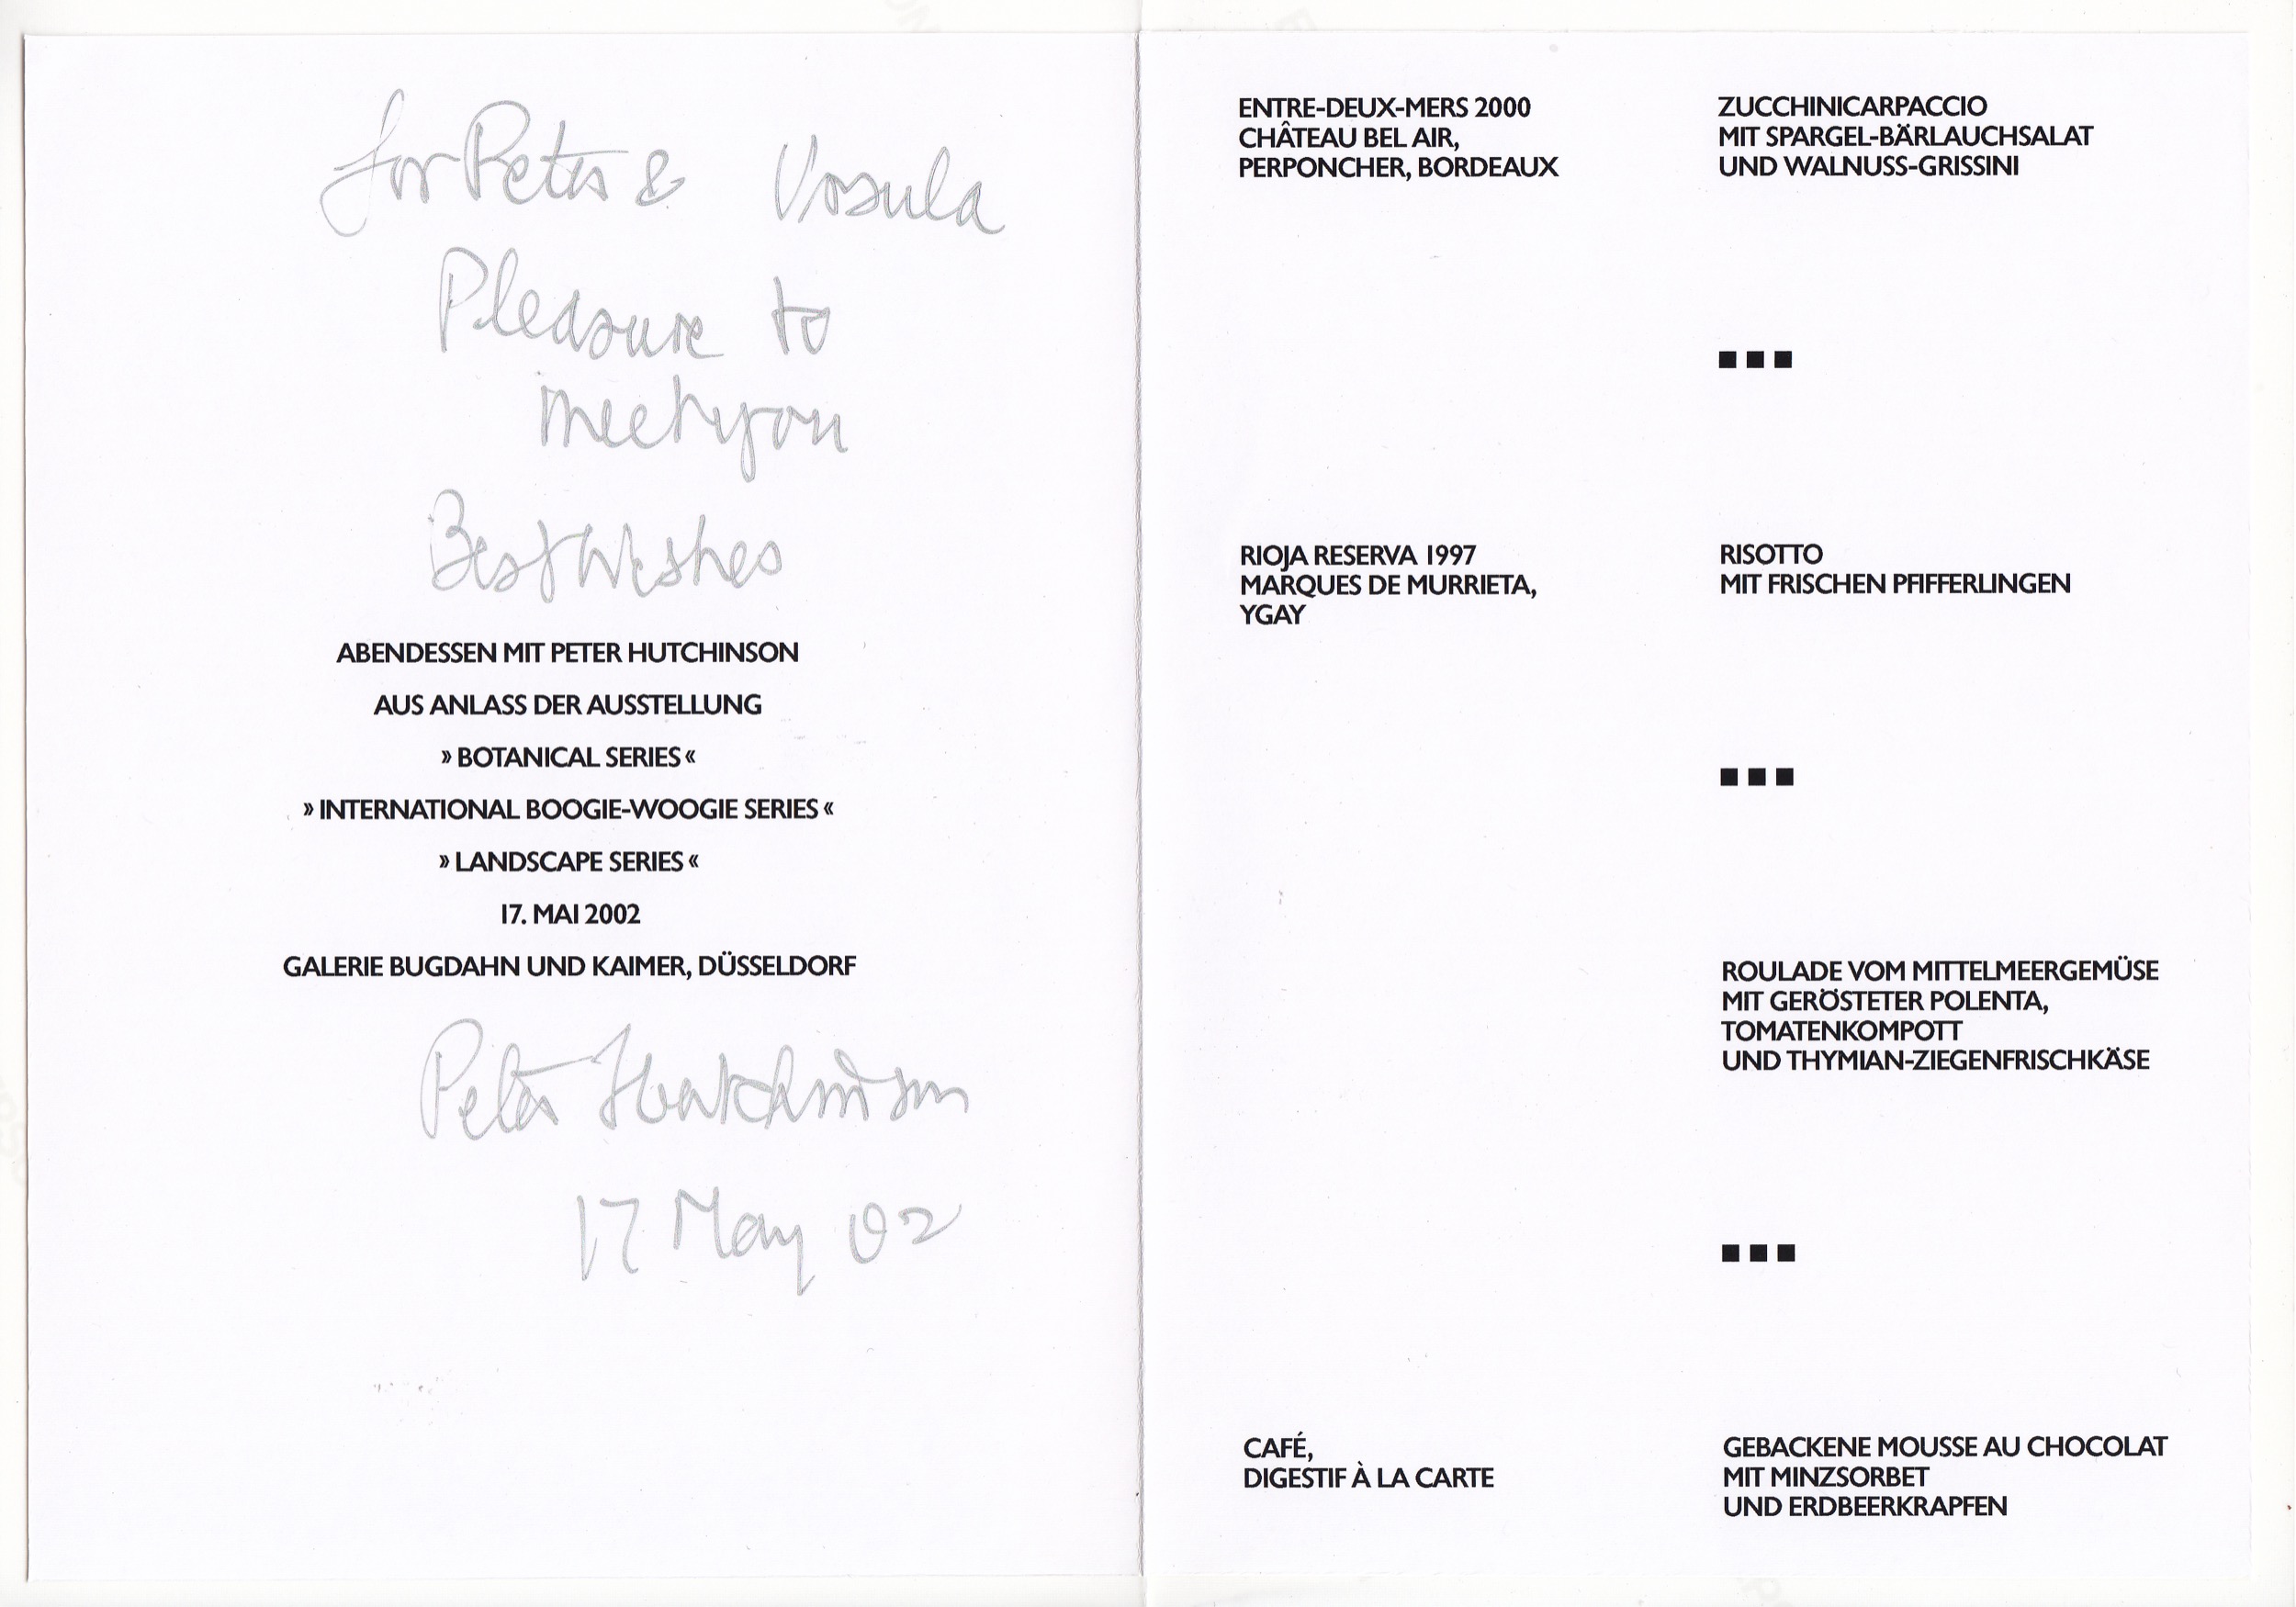 for Peter & Ursula
Pleasure to
meet you
Best Wishes
ABENDESSEN MIT PETER HUTCHINSON
AUS ANLASS DER AUSSTELLUNG
» BOTANICAL SERIES «
» INTERNATIONAL BOOGIE-WOOGIE SERIES «
» LANDSCAPE SERIES «
17. MAI 2002
GALERIE BUGDAHN UND KAIMER, DÜSSELDORF
Peter Hutchinson
17 May 02
ENTRE-DEUX-MERS 2000
CHÂTEAU BEL AIR,
PERPONCHER, BORDEAUX
ZUCCHINICARPACCIO
MIT SPARGEL-BÄRLAUCHSALAT
UND WALNUSS-GRISSINI
RIOJA RESERVA 1997
MARQUES DE MURRIETA,
YGAY
RISOTTO
MIT FRISCHEN PFIFFERLINGEN
ROULADE VOM MITTELMEERGEMÜSE
MIT GERÖSTETER POLENTA,
TOMATENKOMPOTT
UND THYMIAN-ZIEGENFRISCHKÄSE
CAFÉ,
DIGESTIF À LA CARTE
GEBACKENE MOUSSE AU CHOCOLAT
MIT MINZSORBET
UND ERDBEERKRAPFEN